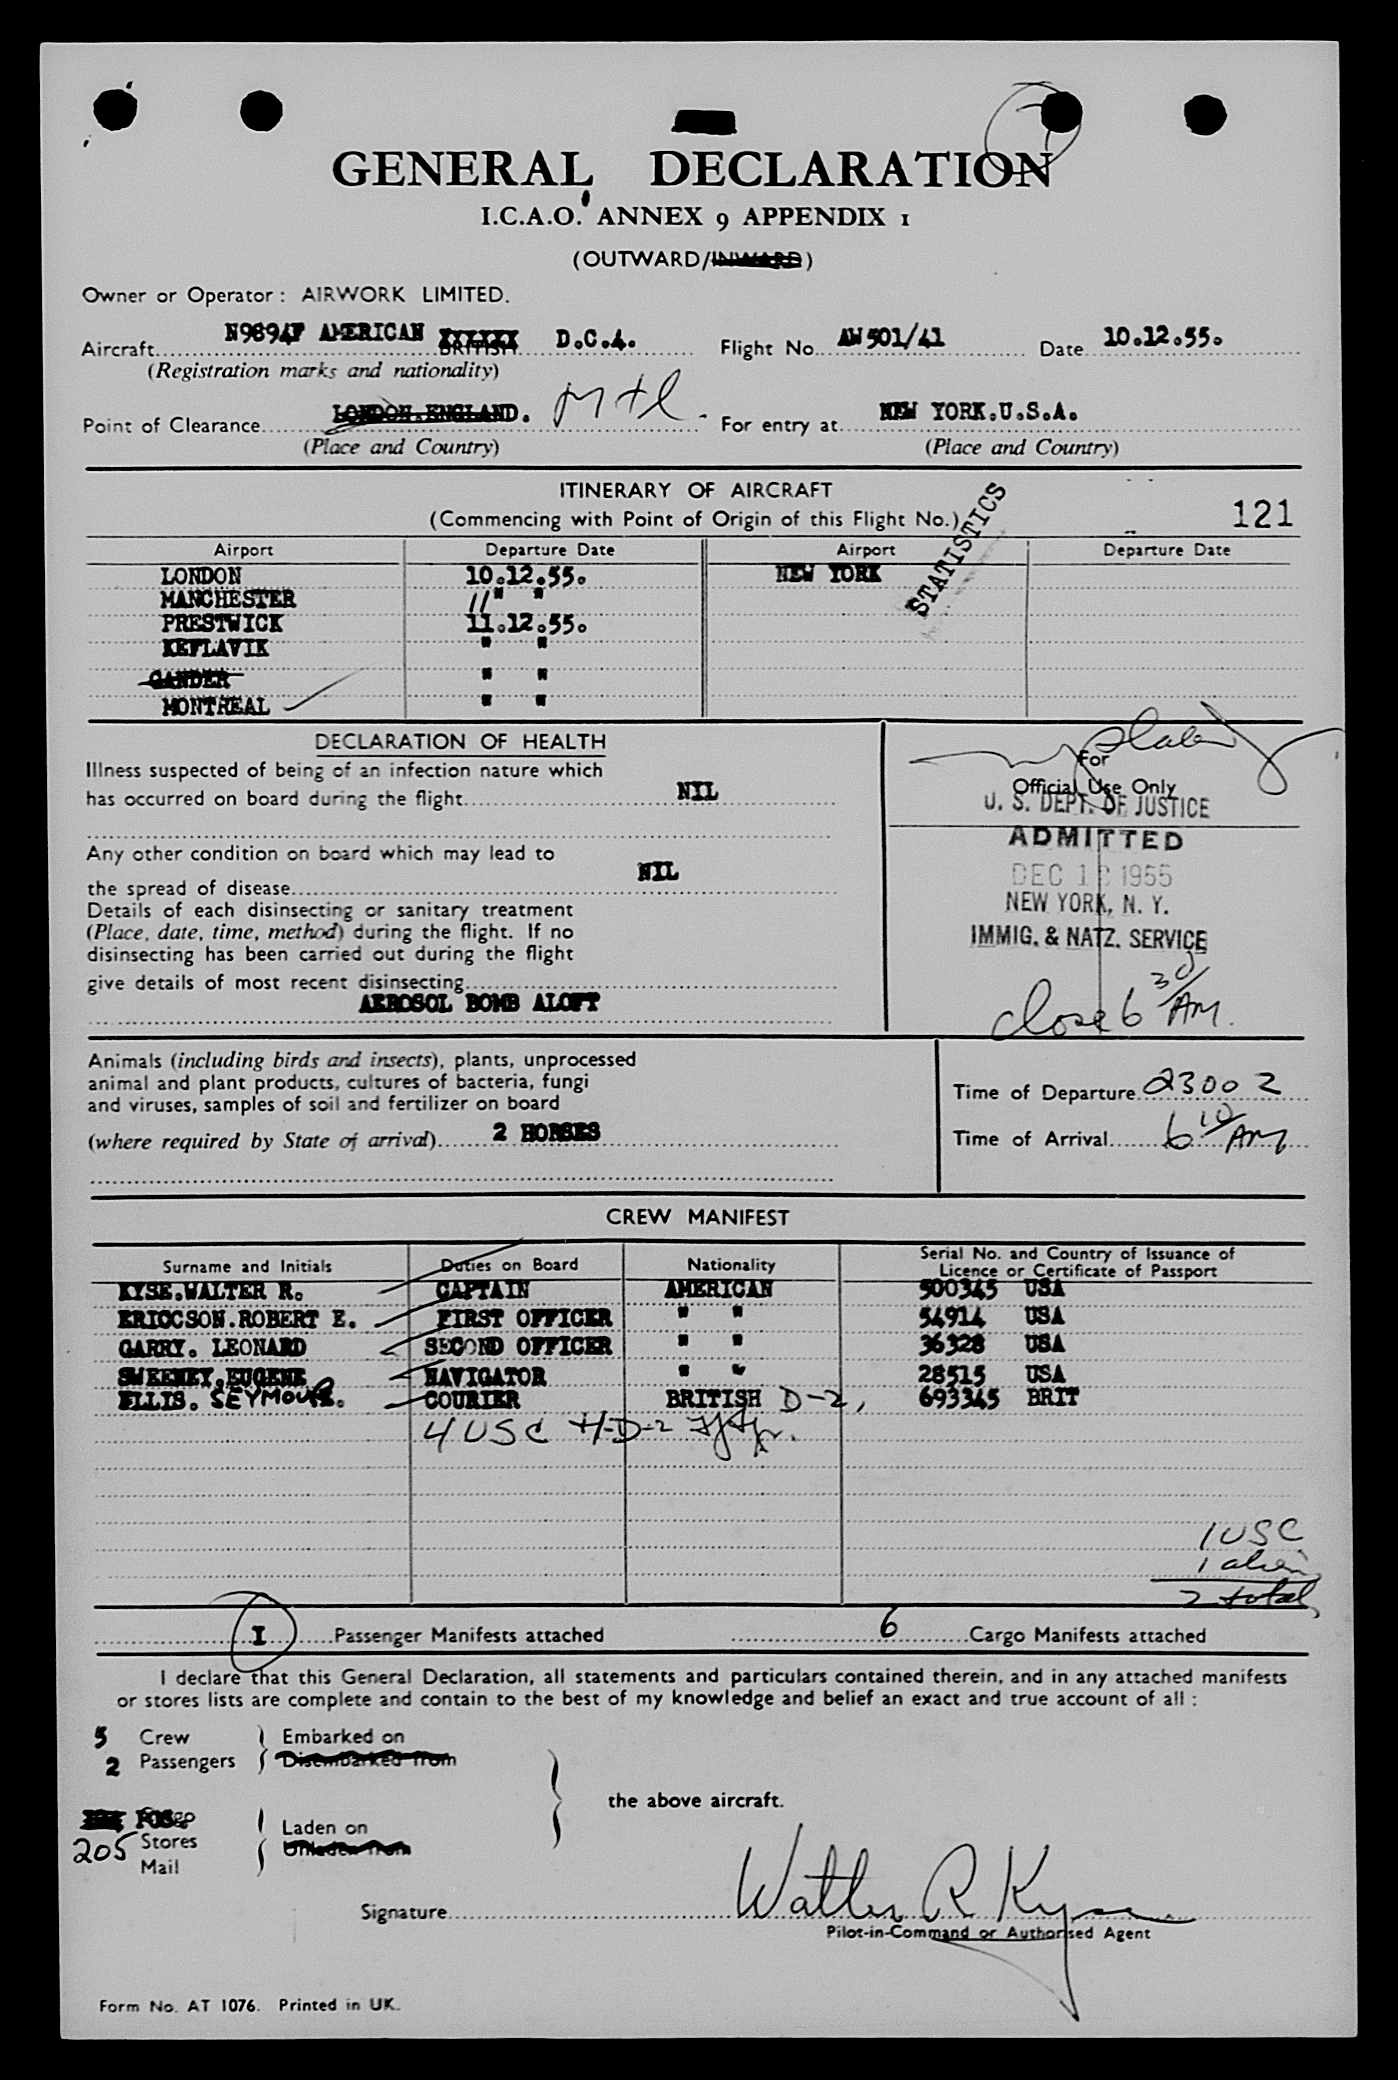 GENERAL DECLARATION
I.C.A.O. ANNEX 9 APPENDIX 1
(OUTWARD/INWARD)
Owner or Operator: AIRWORK LIMITED.
Aircraft N9894F AMERICAN BRITISH D.C.4. Flight No. AW 501/41 Date 10.12.55.
(Registration marks and nationality)
Point of Clearance LONDON.ENGLAND. Mtl. For entry at NEW YORK.U.S.A.
(Place and Country) (Place and Country)
ITINERARY OF AIRCRAFT
(Commencing with Point of Origin of this Flight No.) 121
STATISTICS
Airport Departure Date Airport Departure Date
LONDON 10.12.55. NEW YORK
MANCHESTER 11 " "
PRESTWICK 11.12.55.
KEFLAVIK " "
GANDER " "
MONTREAL " "
DECLARATION OF HEALTH
Illness suspected of being of an infection nature which
has occurred on board during the flight NIL
Any other condition on board which may lead to
the spread of disease NIL
Details of each disinsecting or sanitary treatment
(Place, date, time, method) during the flight. If no
disinsecting has been carried out during the flight
give details of most recent disinsecting
AEROSOL BOMB ALOFT
For
Official Use Only
U. S. DEPT. OF JUSTICE
ADMITTED
DEC 12 1955
NEW YORK, N. Y.
IMMIG. & NATZ. SERVICE
close 6 30 AM.
Animals (including birds and insects), plants, unprocessed
animal and plant products, cultures of bacteria, fungi
and viruses, samples of soil and fertilizer on board
(where required by State of arrival) 2 HORSES
Time of Departure 2300 Z
Time of Arrival 6 10 AM
CREW MANIFEST
Surname and Initials Duties on Board Nationality Serial No. and Country of Issuance of Licence or Certificate of Passport
KYSE.WALTER R. CAPTAIN AMERICAN 500345 USA
ERICCSON.ROBERT E. FIRST OFFICER " " 54914 USA
GARRY. LEONARD SECOND OFFICER " " 36328 USA
SWEENEY.EUGENE NAVIGATOR " " 28515 USA
ELLIS. SEYMOUR. COURIER BRITISH D-2, 693345 BRIT
4 USC +1-D-2
1 USC
1 alien
2 total
I Passenger Manifests attached 6 Cargo Manifests attached
I declare that this General Declaration, all statements and particulars contained therein, and in any attached manifests
or stores lists are complete and contain to the best of my knowledge and belief an exact and true account of all :
5 Crew Embarked on
2 Passengers Disembarked from
the above aircraft.
POS. Cargo
205 Stores Laden on
Mail Unladen from
Signature Walter R Kyse
Pilot-in-Command or Authorised Agent
Form No. AT 1076. Printed in UK.